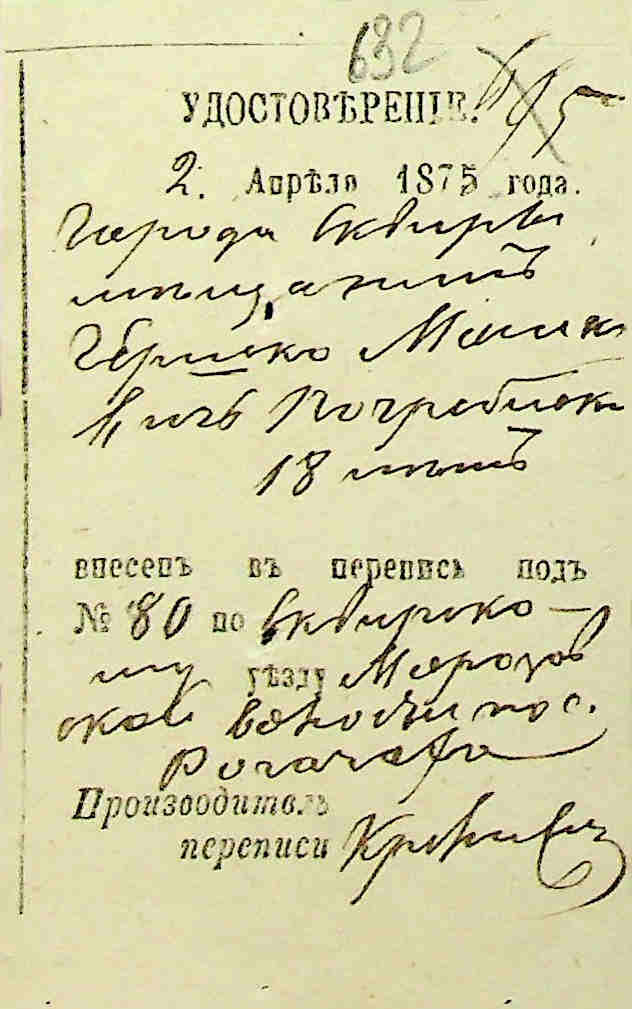 632
УДОСТОВѢРЕНІЕ.
2. Апрѣля 1875 года.
Города Сквиры
мѣщанинъ
Гершко Мошк
вичъ Погребиск
18 лѣтъ
внесенъ въ перепись подъ
№ 80 по Сквирско-
му уѣзду Морозов
ской волости по с.
Производитель
переписи